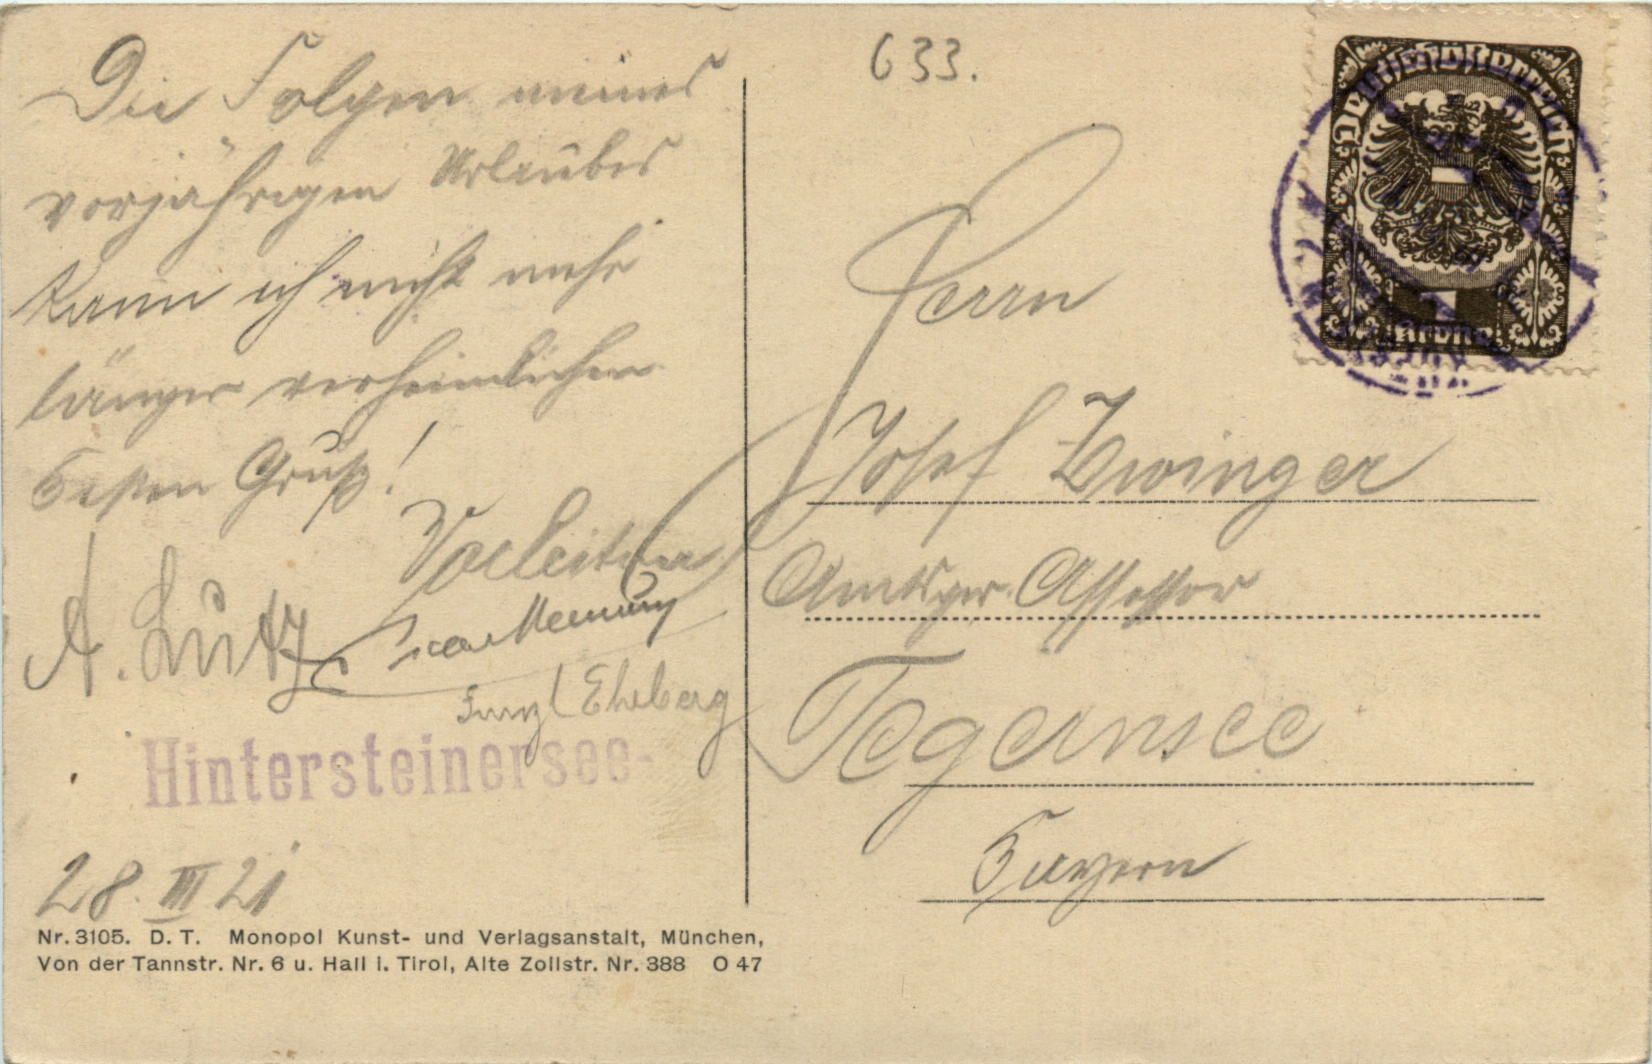 633.
Die Folgen meines
vorjährigen Urlaubes
kann ich nicht mehr
länger verheimlichen
Besten Gruß!
A. Lutz
Ehrberg
Hintersteinersee-
28. III 21
Nr. 3105. D. T. Monopol Kunst- und Verlagsanstalt, München,
Von der Tannstr. Nr. 6 u. Hall i. Tirol, Alte Zollstr. Nr. 388 O 47
Deutschösterreich
1
Krone
Herrn
Josef Zwinger
Amtsger. Assessor
Tegernsee
Bayern